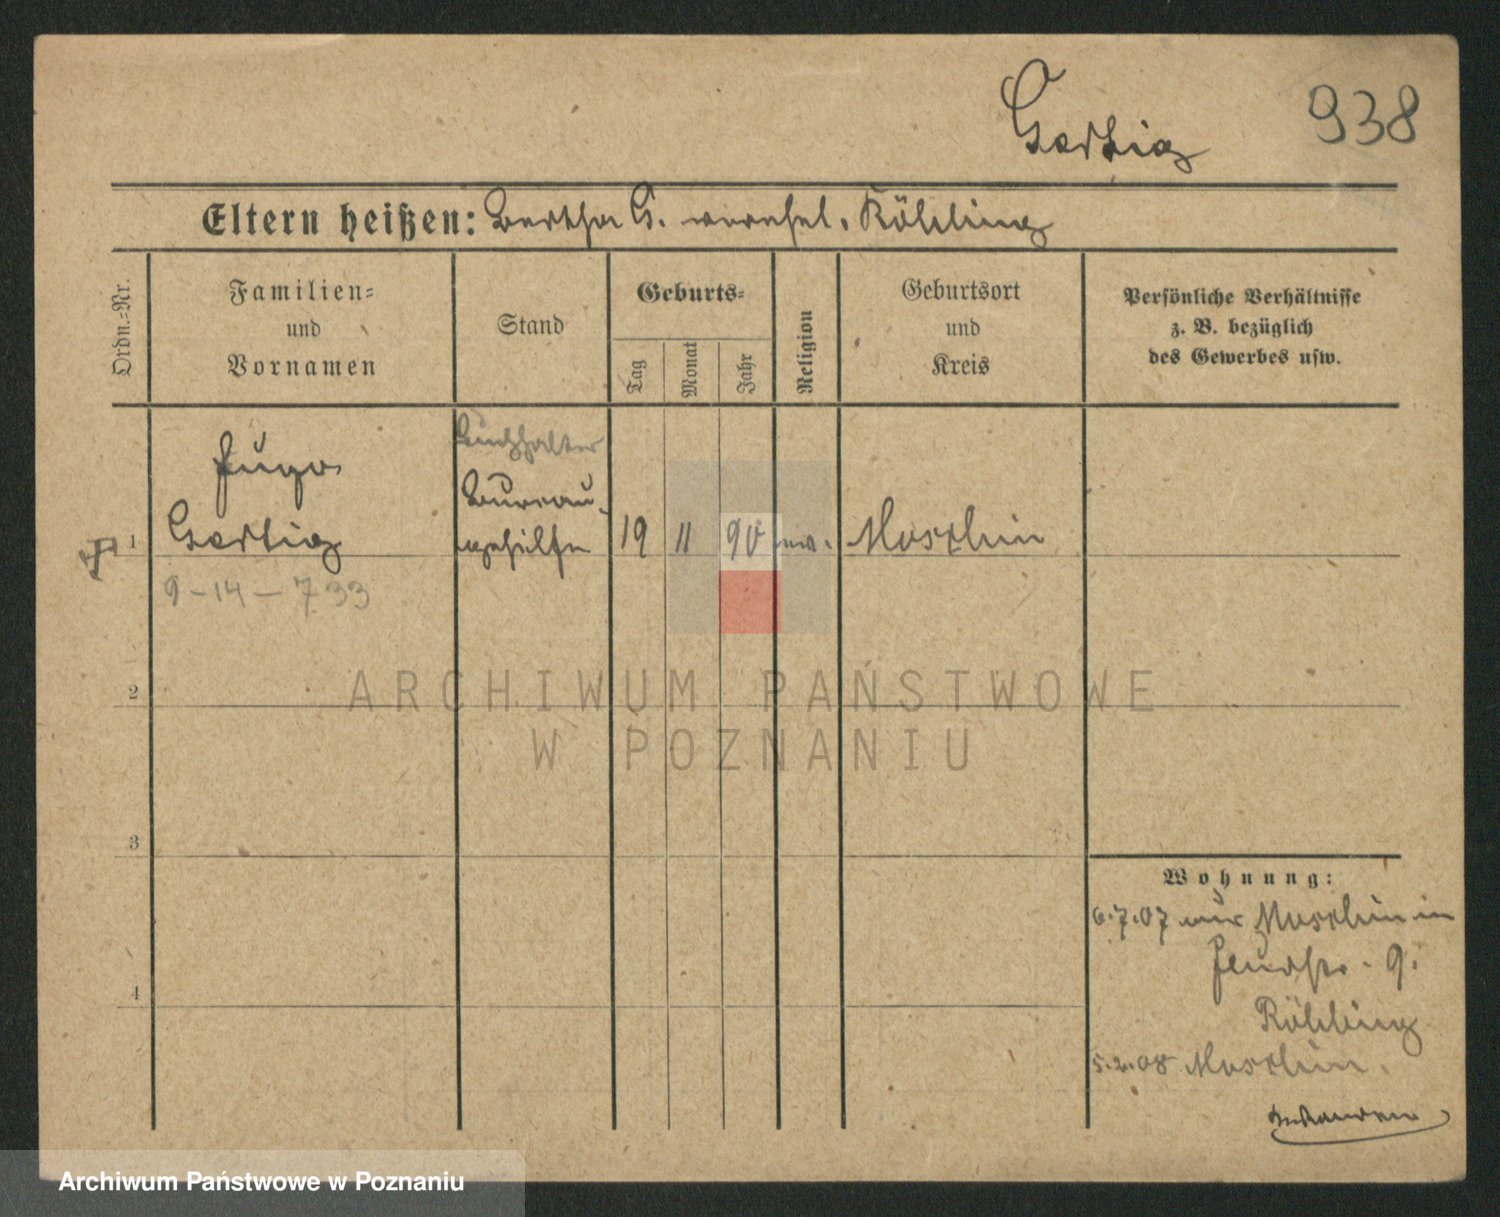 938
Gertig
Eltern heißen: Bertha G. verehel. Röhling
Ordn.-Nr.
Familien-
und
Vornamen
Stand
Geburts-
Tag
Monat
Jahr
Religion
Geburtsort
und
Kreis
Persönliche Verhältnisse
z. B. bezüglich
des Gewerbes usw.
Buchhalter
Hugo
Bureau-
1 Gertig gehilfe 19 11 90 ev. Moschin
9-14-733
2
3
4
Wohnung:
6.7.07 aus Moschin in
9.
Röhling
5.2.08 Moschin.
ARCHIWUM PAŃSTWOWE
W POZNANIU
Archiwum Państwowe w Poznaniu